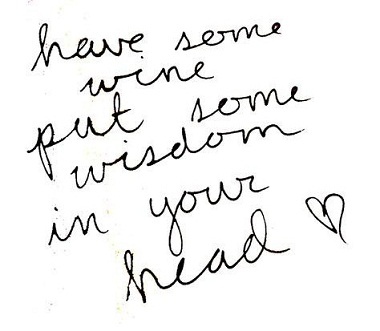 have some
wine
put some
wisdom
in your
head ♡